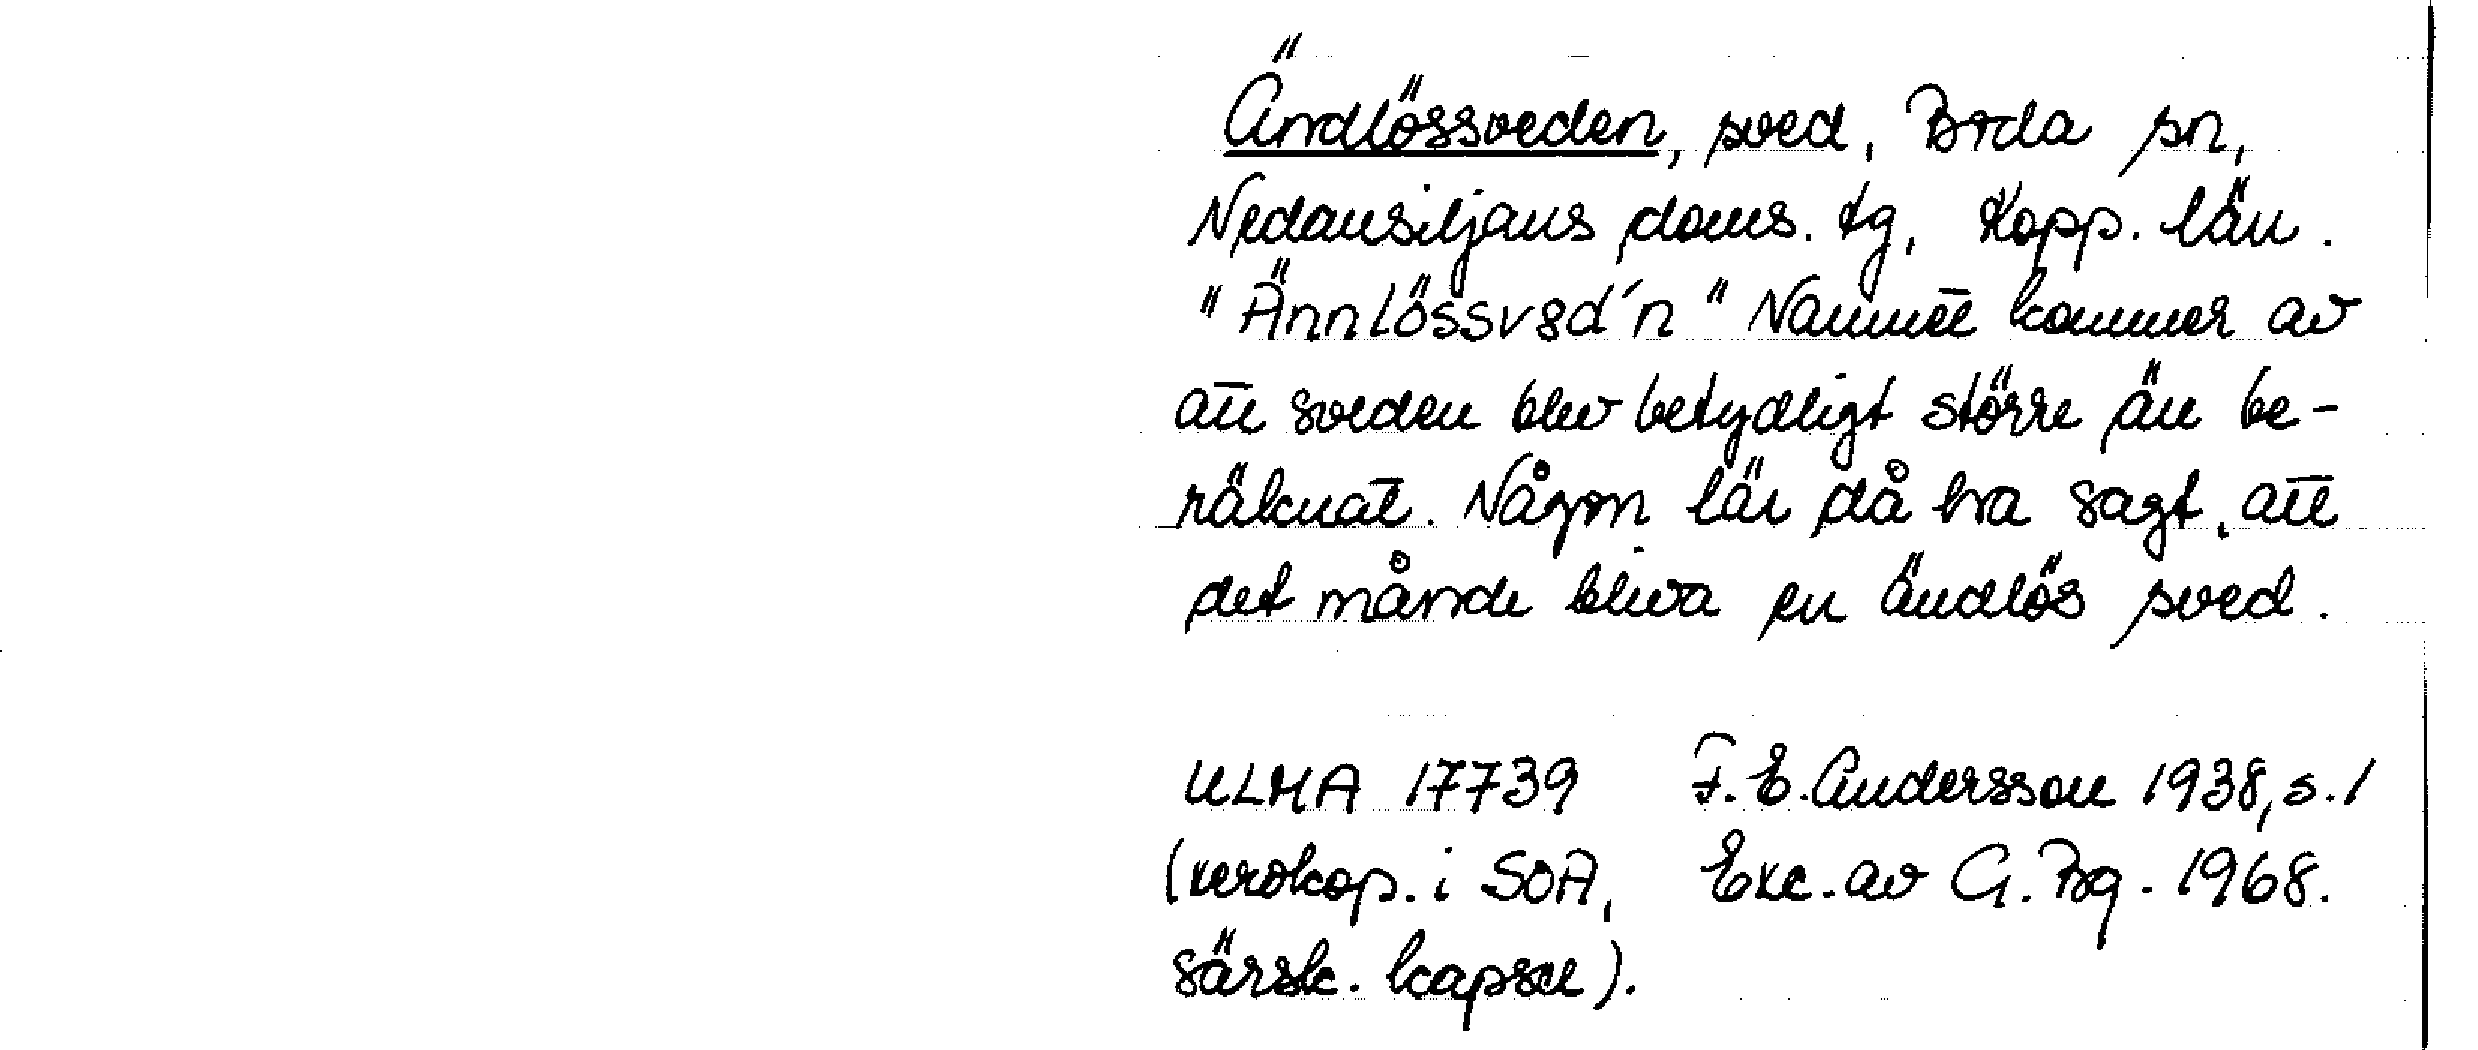 Ändlössveden, sved, Boda sn,
Nedansiljans doms. tg, Kopp. län.
"Ännlössved´n" Namnet kommer av
att sveden blev betydligt större än be-
räknat. Någon lär då ha sagt, att
det månde bliva en ändlös sved.
ULMA 17739 F.E. Andersson 1938, s. 1
(xerokop. i SOA, Exc. av G. Bg. 1968.
särsk. kapsel).